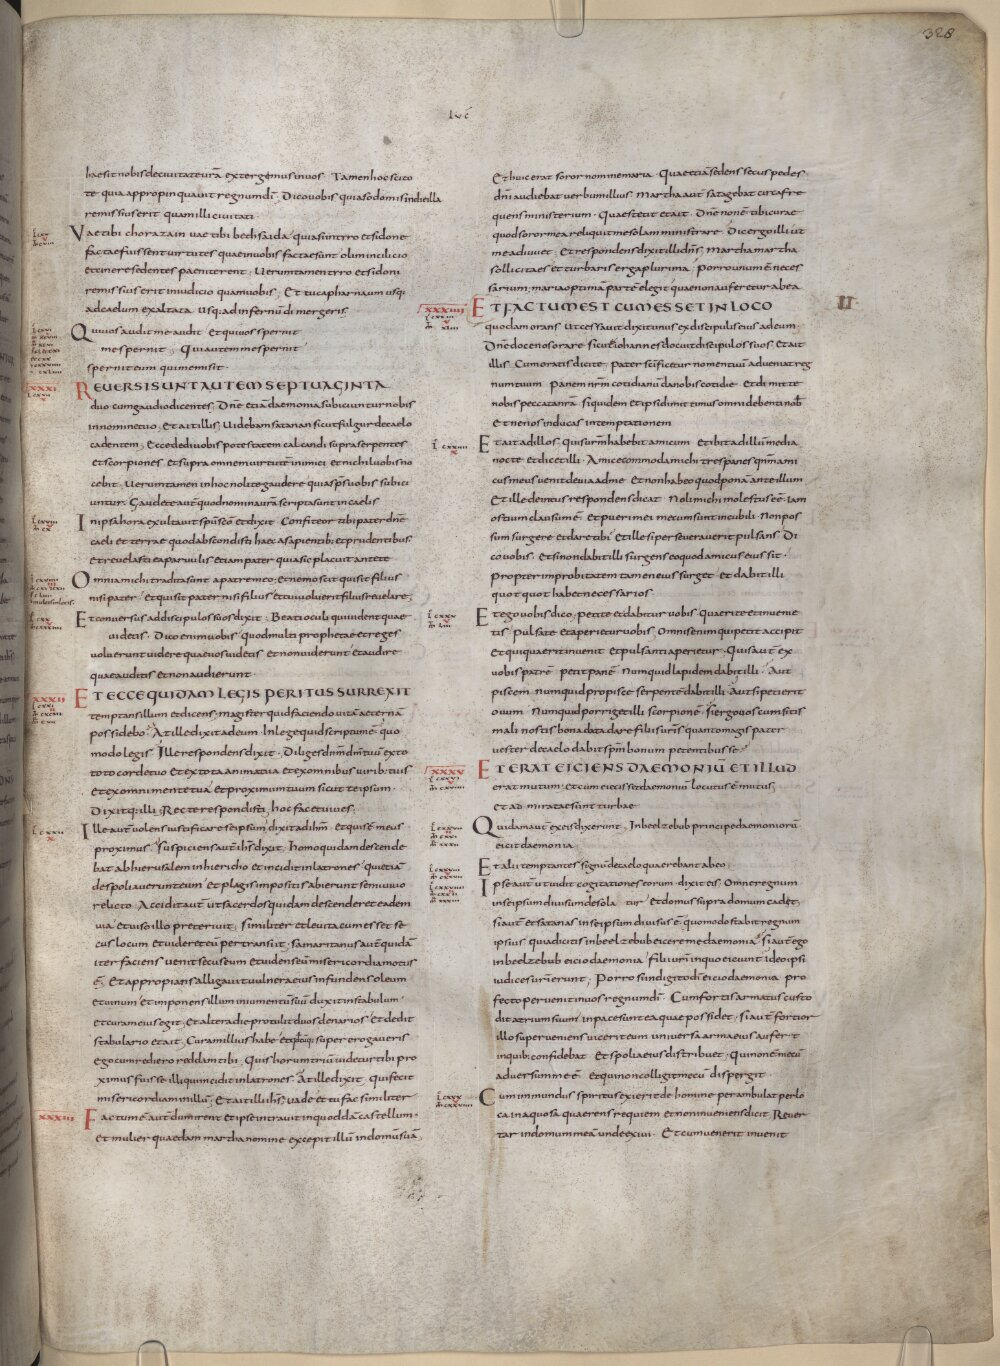 328
Luc
haesit nobis de civitate vra extergemus in vos Tamen hoc scito
te quia appropinquavit regnum di Dico vobis quia sodomis in die illa
remissius erit quam illi civitati
Vae tibi chorazain vae tibi bethsaida quia si in tyro et sidone
factae fuissent virtutes quae in vobis factae sunt olim in cilicio
et cinere sedentes paeniterent Verumtamen tyro et sidoni
remissius erit in iudicio quam vobis Et tu capharnaum usq
ad caelum exaltata usq ad infernum demergeris
Qui vos audit me audit Et qui vos spernit
me spernit Qui autem me spernit
spernit eum qui me misit
XXXI REVERSI SUNT AUTEM SEPTUAGINTA
duo cum gaudio dicentes Dne etia daemonia subiciuntur nobis
in nomine tuo Et ait illis Videbam satanan sicut fulgur de caelo
cadentem Ecce dedi vobis potestatem calcandi supra serpentes
et scorpiones et supra omnem virtute inimici et nichil vobis no
cebit Verumtamen in hoc nolite gaudere quia sps vobis subici
untur Gaudete aute quod nomina vra scripta sunt in caelis
In ipsa hora exultavit spu sco et dixit Confiteor tibi pater dne
caeli et terrae quod abscondisti haec a sapientib; et prudentibus
et revelasti ea parvulis etiam pater quia sic placuit ante te
Omnia michi tradita sunt a patre meo et nemo scit qui sit filius
nisi pater et qui sit pater nisi filius et cui voluerit filius revelare
Et conversus ad discipulos suos dixit Beati oculi qui vident quae
videtis Dico enim vobis quod multi prophetae et reges
voluerunt videre quae vos videtis et non viderunt et audire
quae auditis et non audierunt
XXXII ET ECCE QUIDAM LEGIS PERITUS SURREXIT
temptans illum et dicens magister quid faciendo vita aeterna
possidebo At ille dixit ad eum In lege quid scriptum e quo
modo legis Ille respondens dixit Diliges dnm dm tuu ex to
to corde tuo et ex tota anima tua et ex omnibus virib; tuis
et ex omni mente tua et proximum tuum sicut te ipsum
Dixitq; illi Recte respondisti hoc fac et vives
Ille aute volens iustificare se ipsum dixit ad ihm et quis e meus
proximus Suspiciens aute ihs dixit homo quidam descende
bat ab hierusalem in hiericho et incidit in latrones qui etia
despoliaverunt eum et plagis impositis abierunt semivivo
relicto Accidit aute ut sacerdos quidam descenderet eadem
via et viso illo preterivit similiter et levita cum esset se
cus locum et videret eu pertransiit Samaritanus aute quida
iter faciens venit secus eum et videns eu misericordia motus
e Et approprians alligavit vulnera eius infundens oleum
et vinum et imponens illum in iumentu suu duxit in stabulum
et curam eius egit Et altera die protulit duos denarios et dedit
stabulario et ait Curam illius habe et quodcuq; super erogaveris
ego cum rediero reddam tibi Quis horum triu videtur tibi pro
ximus fuisse illi qui incidit in latrones At ille dixit Qui fecit
misericordiam in illu Et ait illi ihs vade et tu fac similiter
XXXIII Factum e aut dum irent et ipse intravit in quodda castellum
et mulier quaedam martha nomine excepit illu in domu sua
Et huic erat soror nomine maria Quae etia sedens secus pedes
dni audiebat verbum illius Martha aut satagebat circa fre
quens ministerium Quae stetit et ait Dne non e tibi curae
quod soror mea reliquit me solam ministrare Dic ergo illi ut
me adiuvet Et respondens dixit illi dns Martha martha
sollicita es et turbaris erga plurima Porro unum e neces
sarium; maria optima parte elegit quae non auferetur ab ea
XXXIIII ET FACTUM EST CUM ESSET IN LOCO
quodam orans ut cessavit dixit unus ex discipulis eius ad eum
Dne doce nos orare sicut et iohannes docuit discipulos suos Et ait
illis Cum oratis dicite Pater scificetur nomen tuu adveniat reg
num tuum Panem nrm cotidianu da nobis cotidie Et dimitte
nobis peccata nra siquidem et ipsi dimittimus omni debenti nob
Et ne nos inducas in temptationem
Et ait ad illos Quis vrm habebit amicum et ibit ad illu media
nocte et dicet illi Amice commoda michi tres panes qnm ami
cus meus venit de via ad me et non habeo quod pona ante illum
Et ille deintus respondens dicat Noli michi molestus ee iam
ostium clausum e et pueri mei mecum sunt in cubili Non pos
sum surgere et dare tibi Et ille si perseveraverit pulsans Di
co vobis Et si non dabit illi surgens eo quod amicus eius sit
propter improbitatem tamen eius surget et dabit illi
quotquot habet necessarios
Et ego vobis dico petite et dabitur vobis Quaerite et invenie
tis Pulsate et aperietur vobis Omnis enim qui petit accipit
et qui quaerit invenit et pulsanti aperietur Quis aut ex
vobis patre petit pane Numquid lapidem dabit illi Aut
piscem numquid pro pisce serpente dabit illi Aut si petierit
ovum Numquid porriget illi scorpione Si ergo vos cum sitis
mali nostis bona data dare filiis vris quanto magis pater
vester de caelo dabit spm bonum petentibus se
XXXV ET ERAT EICIENS DAEMONIU ET ILLUD
erat mutum et cum eiecisset daemoniu locutus e mutus
et admiratae sunt turbae
Quidam aut ex eis dixerunt In beelzebub principe daemoniorū
eicit daemonia
Et alii temptantes signu de caelo quaerebant ab eo
Ipse aut ut vidit cogitationes eorum dixit eis Omne regnum
in se ipsum divisum desolatur et domus supra domum cadet
si aut et satanas in se ipsum divisus e quomodo stabit regnum
ipsius quia dicitis in beelzebub eicere me daemonia Si aut ego
in beelzebub eicio daemonia filii vri in quo eiciunt ideo ipsi
iudices vri erunt Porro si in digito di eicio daemonia pro
fecto pervenit in vos regnum di Cum fortis armatus custo
dit atrium suum in pace sunt ea quae possidet si aut fortior
illo superveniens vicerit eum universa arma eius aufert
in quib; confidebat et spolia eius distribuet Qui non e mecu
adversum me e et qui non colligit mecu dispergit
Cum inmundus spiritus exierit de homine perambulat per lo
ca inaquosa quaerens requiem et non inveniens dicit Rever
tar in domum mea unde exivi Et cum venerit invenit